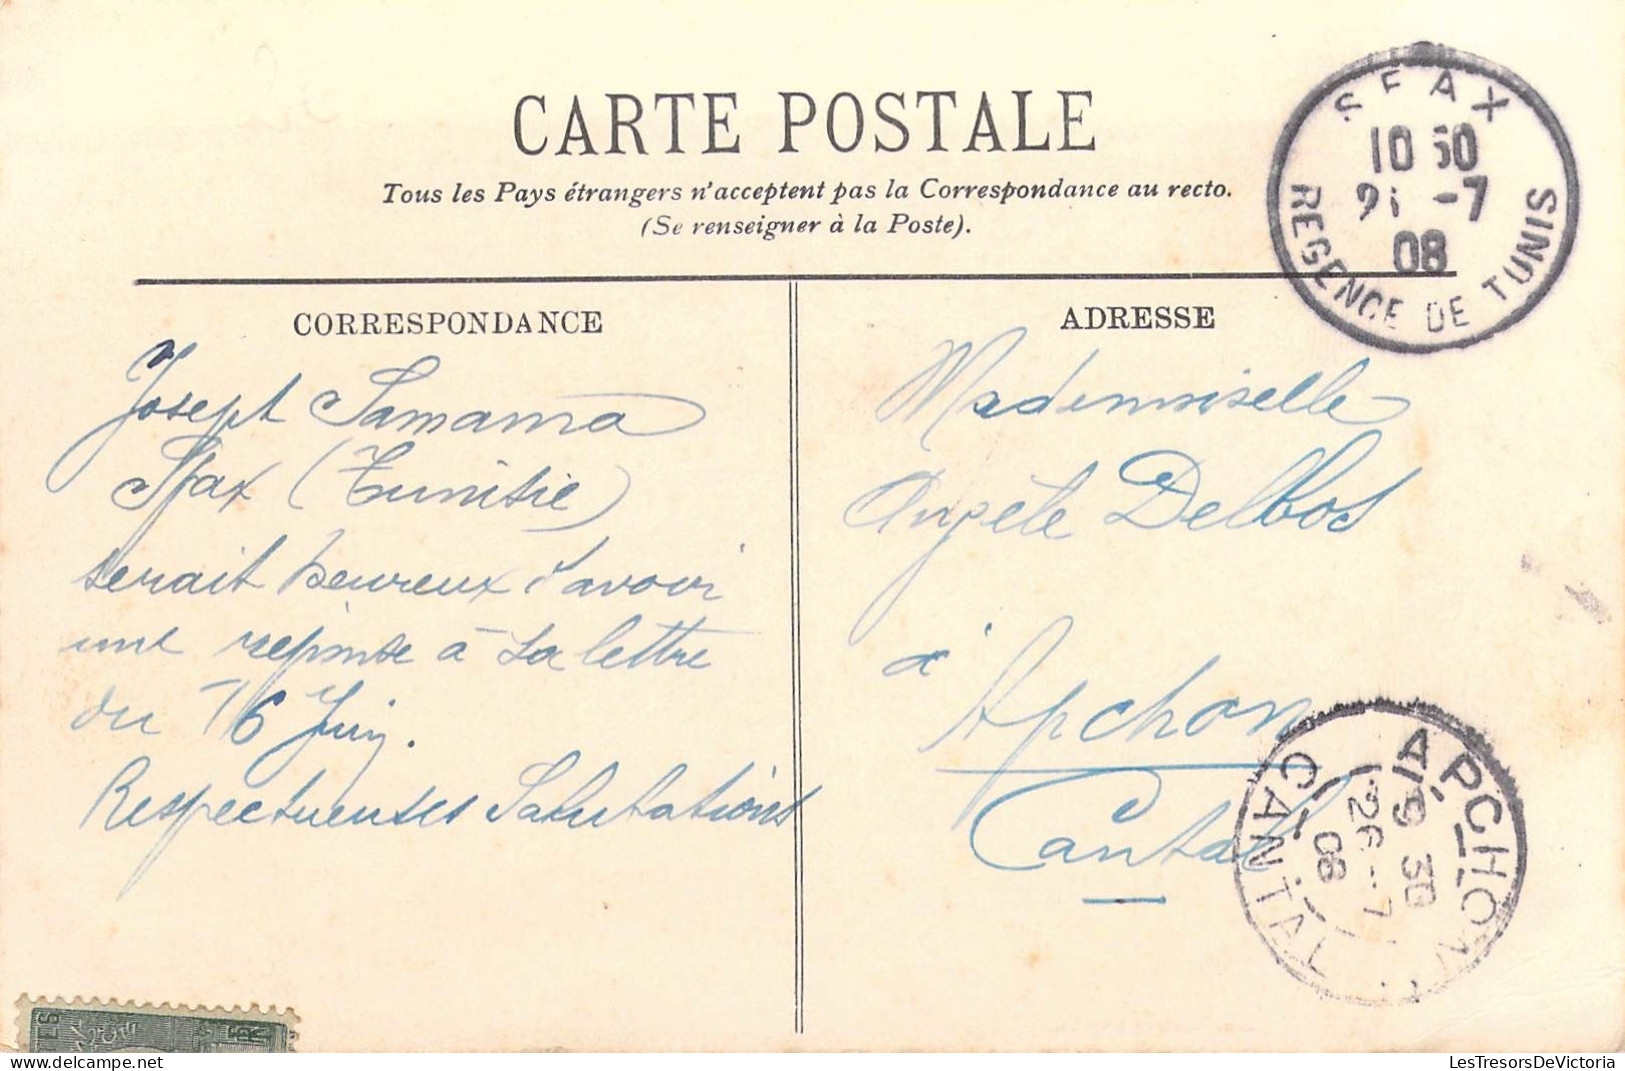 CARTE POSTALE
Tous les Pays étrangers n'acceptent pas la Correspondance au recto.
(Se renseigner à la Poste).
SFAX
10 50
-7
08
REGENCE DE TUNIS
CORRESPONDANCE
Joseph Samama
Sfax (Tunisie)
serait heureux d'avoir
une réponse à sa lettre
du 16 Juin.
Respectueuses Salutations
ADRESSE
Mademoiselle
Angèle Delbos
à
Apchon
Cantal
APCHON
19 30
26 -7
08
CANTAL
LesTresorsDeVictoria